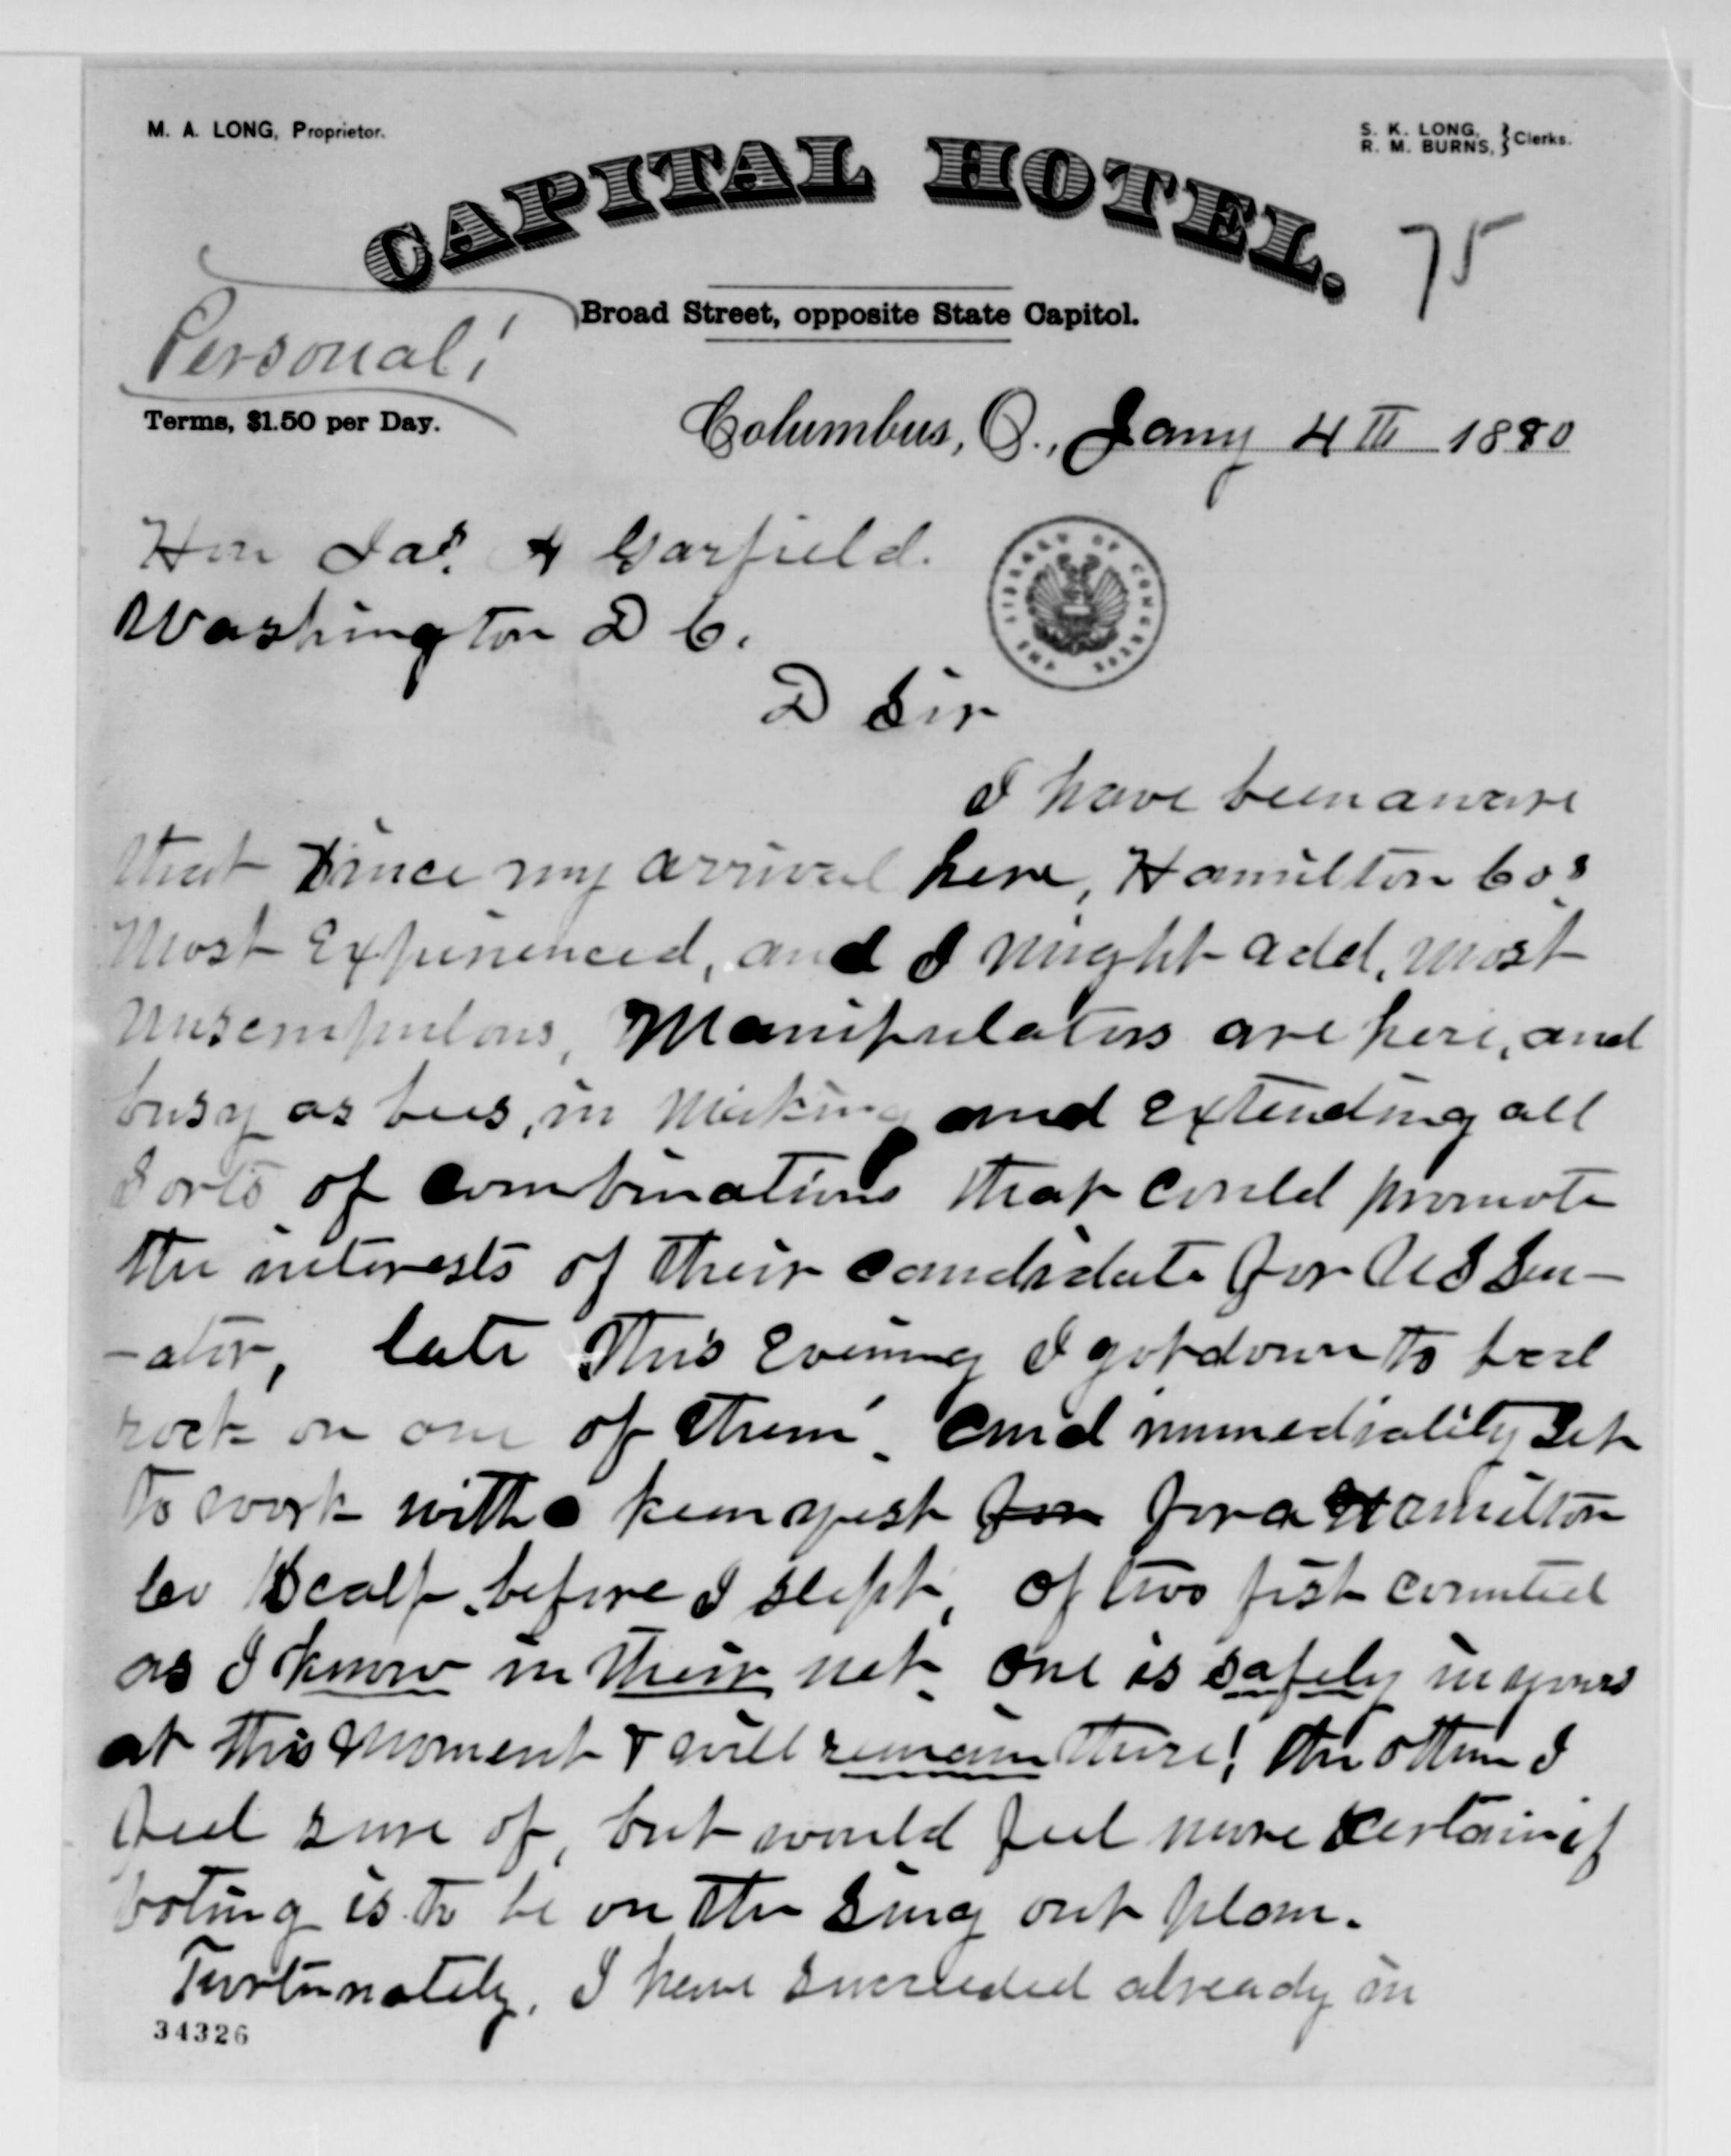 M. A. LONG, Proprietor.
S. K. LONG,
R. M. BURNS, } Clerks.
CAPITAL HOTEL.
75
Broad Street, opposite State Capitol.
Personal!
Terms, $1.50 per Day.
Columbus, O., Jany 4th 1880
Hon Jas. A Garfield.
Washington D C.
THE LIBRARY OF CONGRESS
D Sir
I have been aware
that since my arrival here, Hamilton Cos.
Most Experienced, and I might add, most
Unscrupulous, Manipulators are here, and
busy as bees, in Making and extending all
Sorts of combinations that could promote
the interests of their candidate for U S Sen-
-ator, late this Evening I got down to bed
rock on one of them. and immediately Set
to work with a keen zest for for a Hamilton
Co Scalp before I slept, of two fish counted
as I know in their net. one is safely in yours
at this Moment & will remain there! the other I
feel sure of, but would feel more certain if
Voting is to be on the Sing out plan.
Fortunately, I have succeeded already in
34326